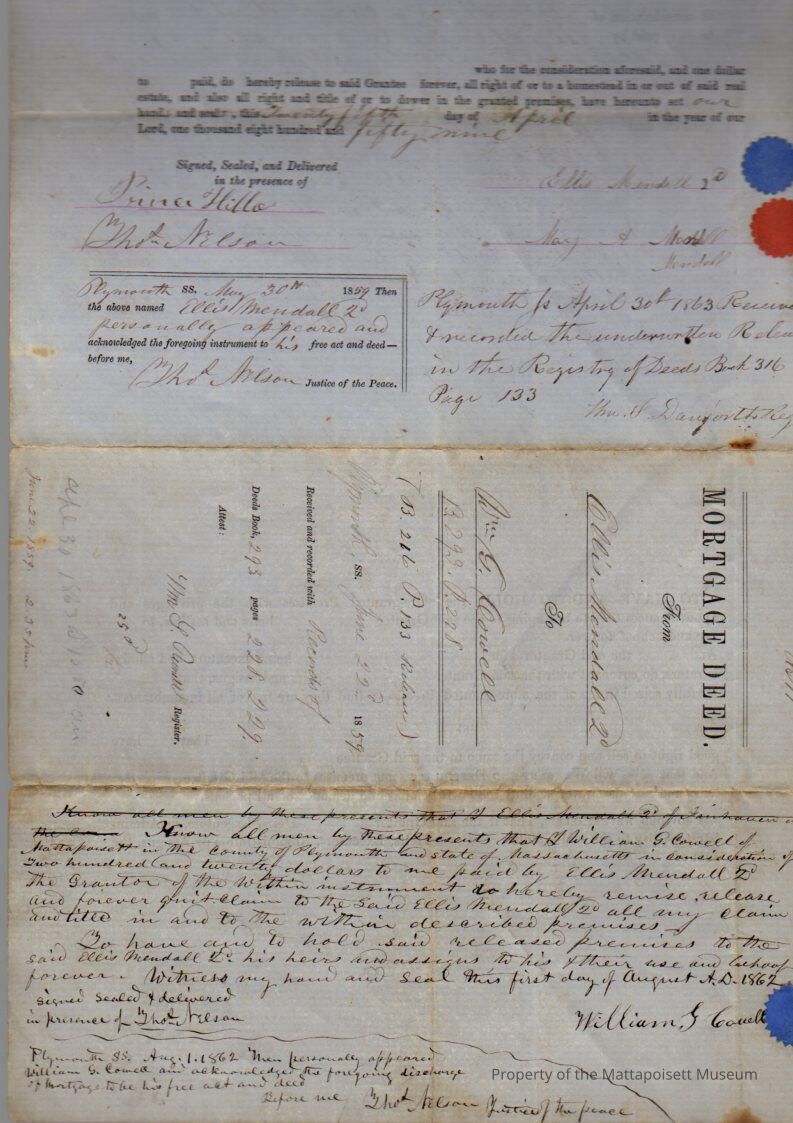 who for the consideration aforesaid, and one dollar
to paid, do hereby release to said Grantee forever, all right of or to a homestead in or out of said real
estate, and also all right and title of or to dower in the granted premises, have hereunto set our
hand and seal, this Twenty fifth day of April in the year of our
Lord, one thousand eight hundred and fifty nine
Signed, Sealed, and Delivered
in the presence of
Ellis Mendall 2d
Thos. Nelson
May A
Mendall
Plymouth SS. May 30th 1859 Then
the above named Ellis Mendall 2d
personally appeared and
acknowledged the foregoing instrument to his free act and deed—
before me,
Thos. Nelson Justice of the Peace.
Plymouth Ss April 30th 1863
& recorded the underwritten
in the Registry of Deeds Book 316
Page 133
MORTGAGE DEED.
From
Ellis Mendall 2d
To
Wm G. Cowell
B. 293. P. 228
(B. 216 P. 133 Release)
Plymouth, SS. June 22d 1859
Received and recorded with Records of
Deeds Book, 293 pages 228. 229.
Attest:
Wm S. Register.
25
Apl 30 1863
June 22. 1859
Know all men by these presents that I Ellis Mendall 2d of Fairhaven
Know all men by these presents that I William G. Cowell of
Mattapoisett in the County of Plymouth and state of Massachusetts in consideration of
Two hundred and twenty dollars to me paid by Ellis Mendall 2d
the Grantor of the within instrument do hereby remise, release
and forever quit claim to the said Ellis Mendall 2d all my claim
and title in and to the within described premises,
To have and to hold said released premises to the
said Ellis Mendall 2d his heirs and assigns to his & their use and behoof
forever. Witness my hand and seal this first day of August A.D. 1862
signed sealed & delivered
in presence of Thos. Nelson
William G Cowell
Plymouth SS. Aug. 1. 1862 Then personally appeared
William G. Cowell and acknowledged the foregoing discharge
of mortgage to be his free act and deed
Before me Thos. Nelson Justice of the peace
Property of the Mattapoisett Museum